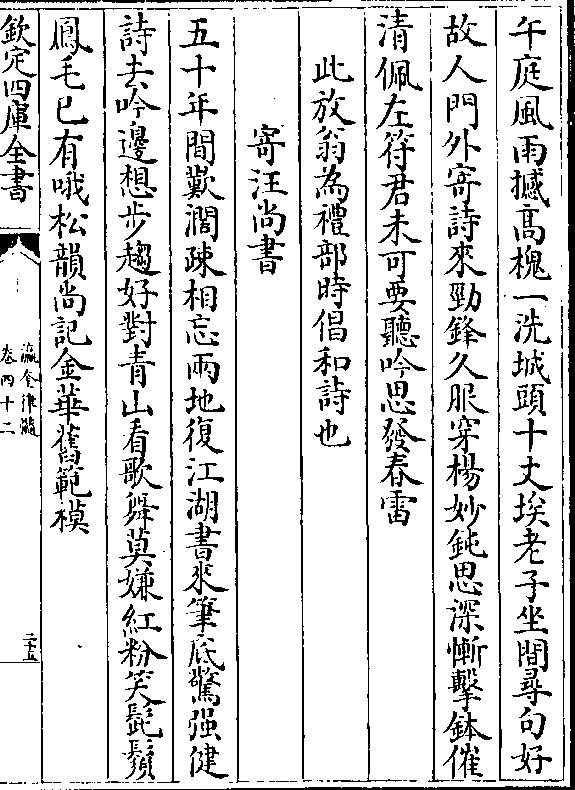 午庭風雨撼髙槐一洗城頭十丈埃老子坐間尋句好
故人門外寄詩來勁鋒久服穿楊妙鈍思深慚擊鉢催
清佩左符君未可要聽吟思發春雷
此放翁為禮部時倡和詩也
寄汪尚書
五十年間歎濶疎相忘兩地復江湖書來筆底驚强健
詩去吟邊想步趨好對青山看歌舞莫嫌紅粉笑髭鬚
鳳毛已有哦松韻尚記金華舊範模
欽定四庫全書
瀛奎律髓
卷四十二
二十五